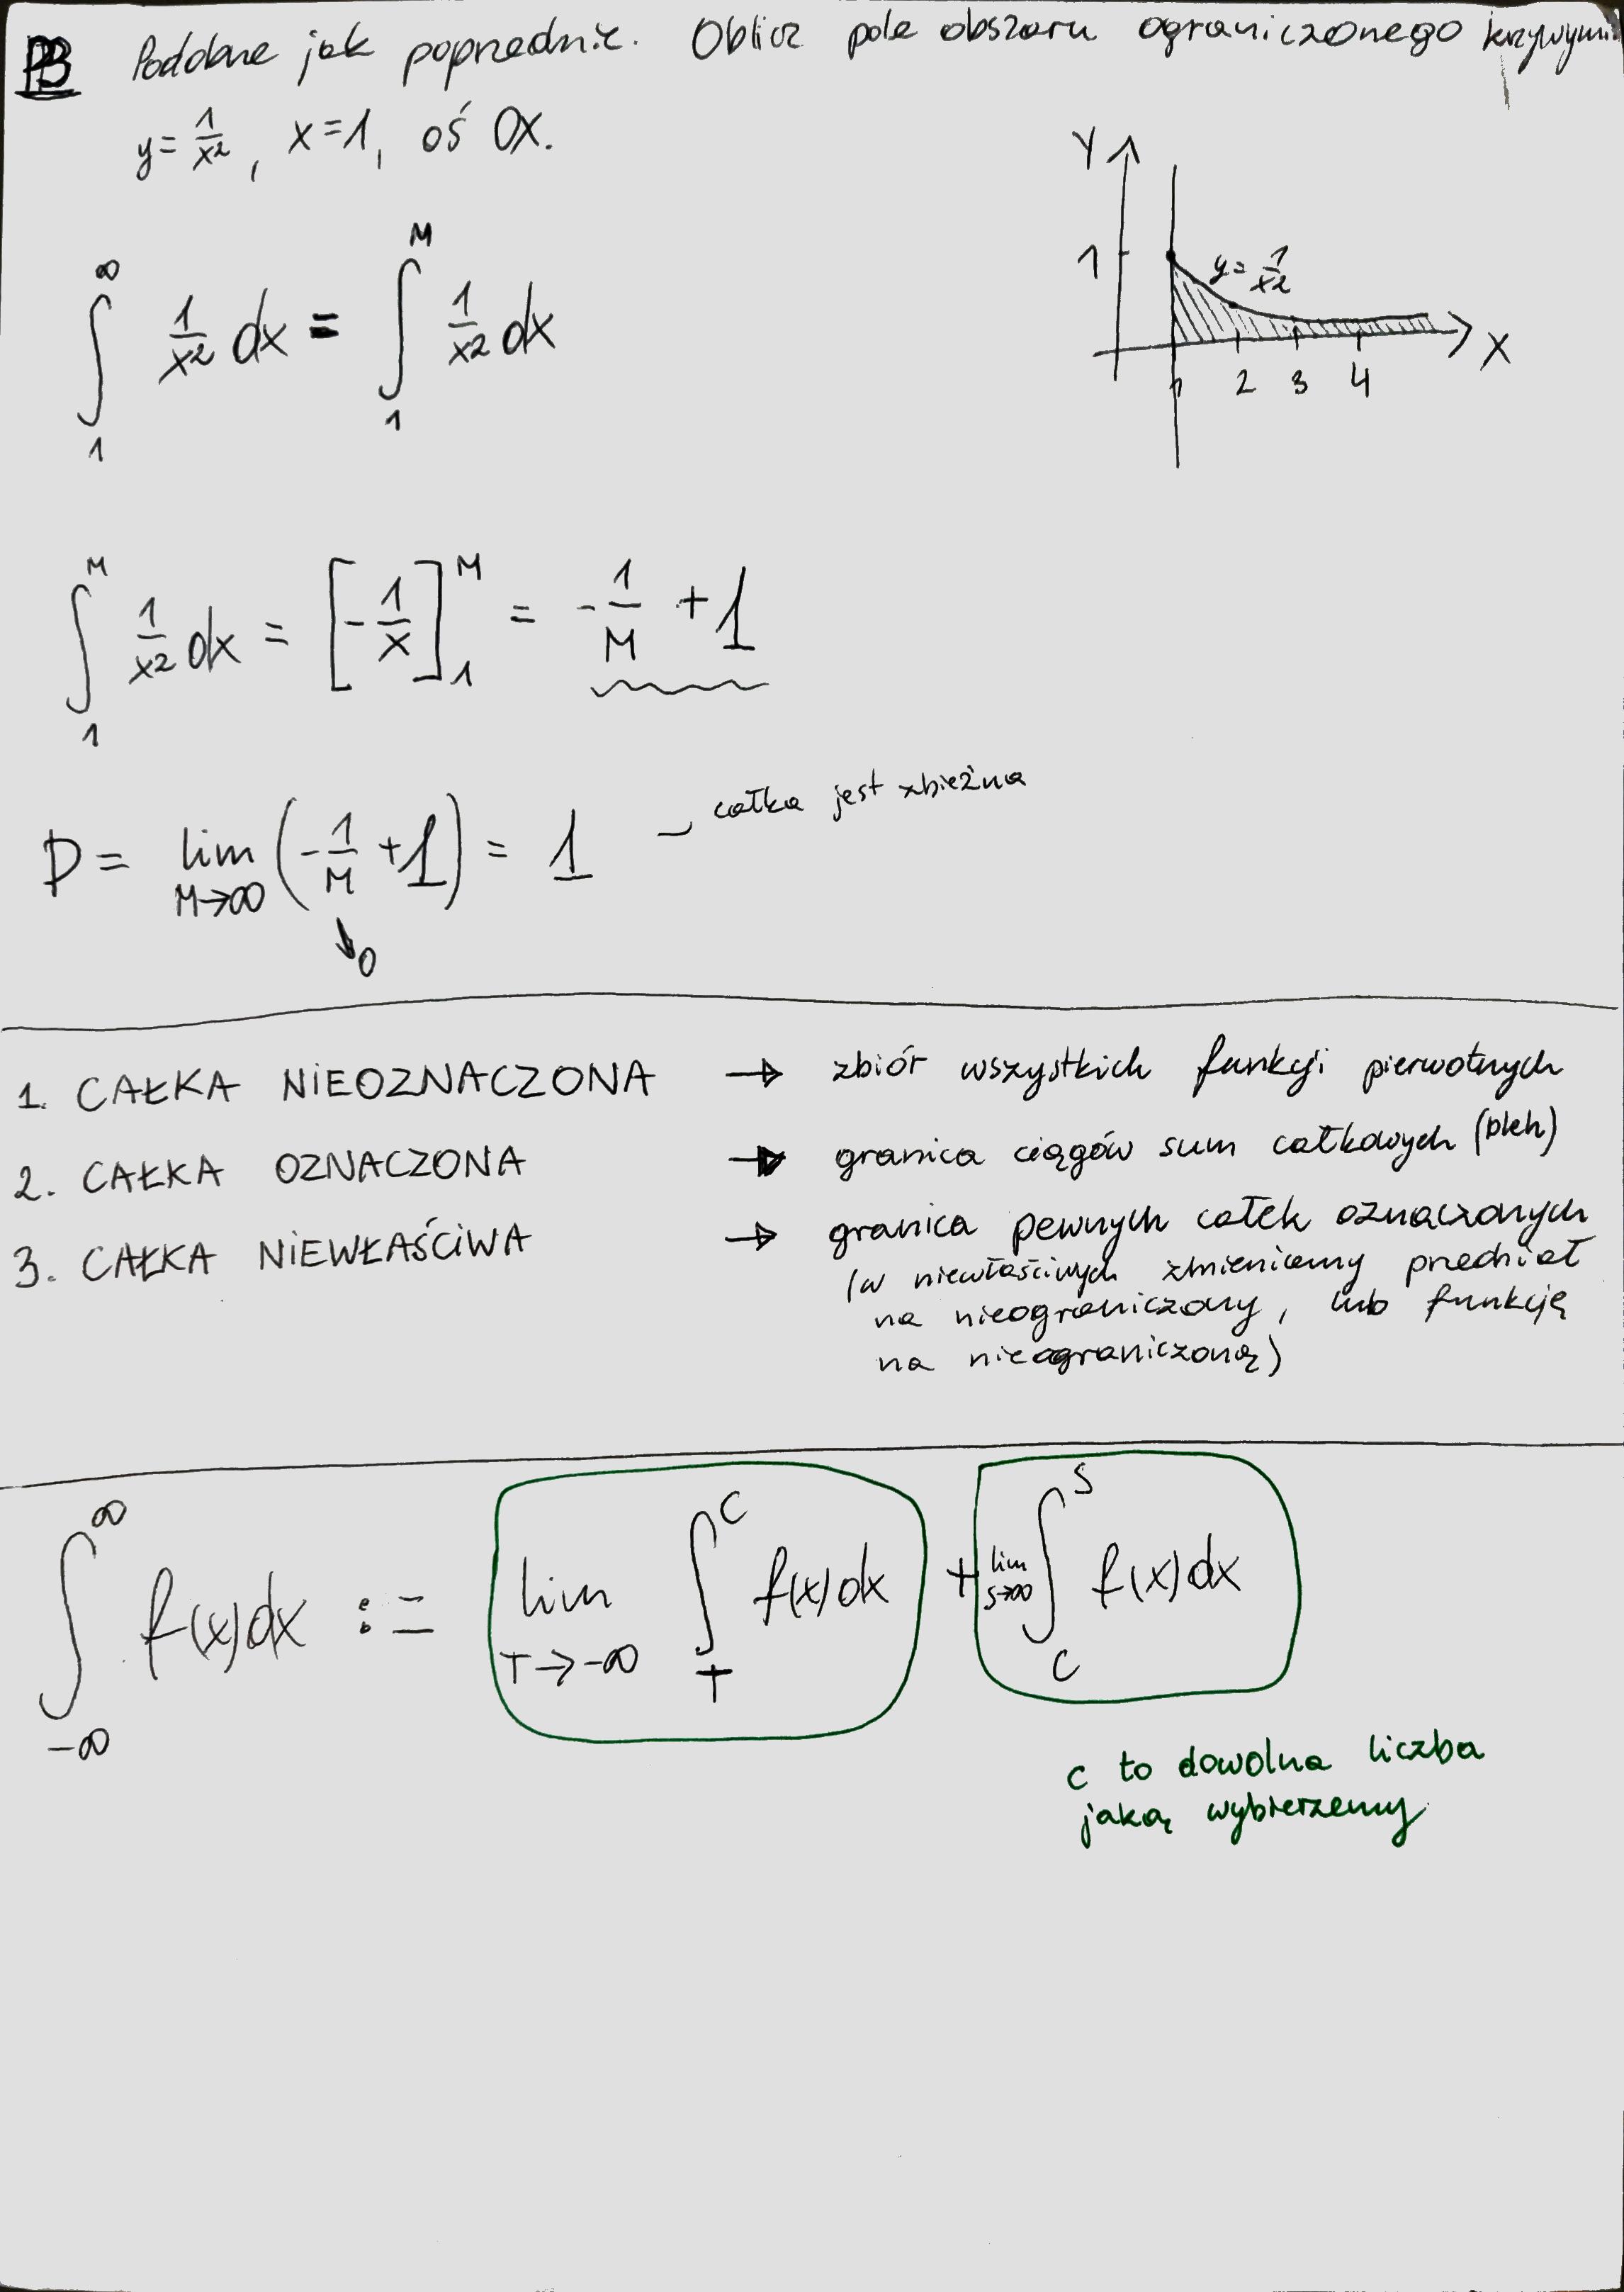 PB Podobne jak poprzednie. Oblicz pole obszaru ograniczonego krzywymi
y = 1/x², x=1, oś OX.
Y
1
y = 1/x²
X
1 2 3 4
∫₁^∞ 1/x² dx = ∫₁^M 1/x² dx
∫₁^M 1/x² dx = [-1/x]₁^M = -1/M + 1
P = lim M→∞ (-1/M + 1) = 1 – całka jest zbieżna
↓0
1. CAŁKA NIEOZNACZONA → zbiór wszystkich funkcji pierwotnych
2. CAŁKA OZNACZONA → granica ciągów sum całkowych (bleh)
3. CAŁKA NIEWŁAŚCIWA → granica pewnych całek oznaczonych
(w niewłaściwych zmieniamy przedział
na nieograniczony, lub funkcję
na nieograniczoną)
∫_-∞^∞ f(x)dx := lim T→-∞ ∫_T^C f(x)dx + lim S→∞ ∫_C^S f(x)dx
c to dowolna liczba
jaką wybierzemy